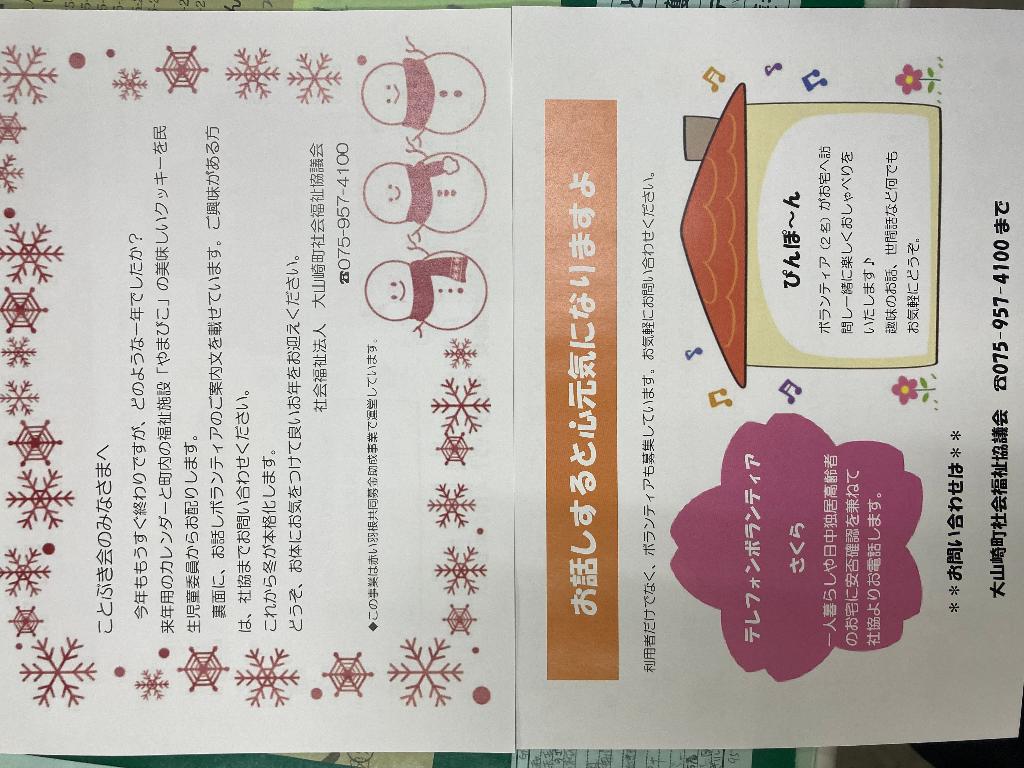 ことぶき会のみなさまへ
今年ももうすぐ終わりですが、どのような一年でしたか?
来年用のカレンダーと町内の福祉施設「やまびこ」の美味しいクッキーを民
生児童委員からお配りします。
裏面に、お話しボランティアのご案内文を載せています。ご興味がある方
は、社協までお問い合わせください。
これから冬が本格化します。
どうぞ、お体にお気をつけて良いお年をお迎えください。
社会福祉法人 大山崎町社会福祉協議会
☎075-957-4100
◆この事業は赤い羽根共同募金助成事業で運営しています。
お話しすると心元気になりますよ
利用者だけでなく、ボランティアも募集しています。お気軽にお問い合わせください。
テレフォンボランティア
さくら
一人暮らしや日中独居高齢者
のお宅に安否確認を兼ねて
社協よりお電話します。
ぴんぽ~ん
ボランティア(2名)がお宅へ訪
問し一緒に楽しくおしゃべりを
いたします♪
趣味のお話、世間話など何でも
お気軽にどうぞ。
**お問い合わせは**
大山崎町社会福祉協議会 ☎075-957-4100 まで